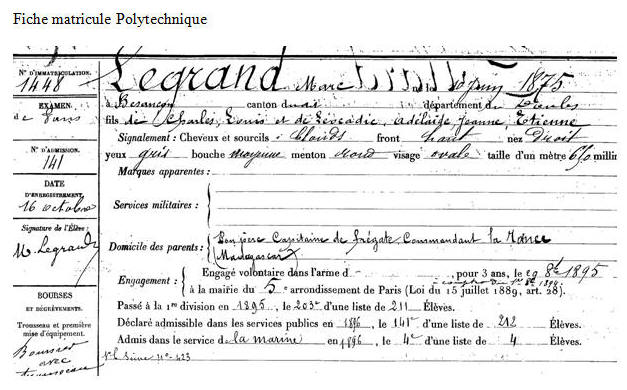 Fiche matricule Polytechnique
N° D'IMMATRICULATION.
1448
EXAMEN.
de Paris
N° D'ADMISSION.
141
DATE
D'ENREGISTREMENT.
16 octobre
Signature de l'Élève:
M. Legrand
BOURSES
ET DÉGRÈVEMENTS.
Trousseau et première
mise d'équipement.
Boursier
avec
trousseau
Legrand Marc né le 10 juin 1875
à Besançon canton dudit département du Doubs
fils de Charles, Louis et de Léocadie, adélaïde, Jeanne, Etienne
Signalement: Cheveux et sourcils: blonds front haut nez Droit
yeux gris bouche moyenne menton rond visage ovale taille d'un mètre 610 millim
Marques apparentes:
Services militaires:
Domicile des parents: Son père Capitaine de frégate Commandant la Rance
(Madagascar)
Engagement: Engagé volontaire dans l'arme d , pour 3 ans, le 29 8bre 1895
à la mairie du 5e arrondissement de Paris (Loi du 15 juillet 1889, art. 28).
Passé à la 1re division en 1895, le 203e d'une liste de 211 Élèves.
Déclaré admissible dans les services publics en 1896, le 141e d'une liste de 212 Élèves.
Admis dans le service de la marine en 1896, le 4e d'une liste de 4 Élèves.